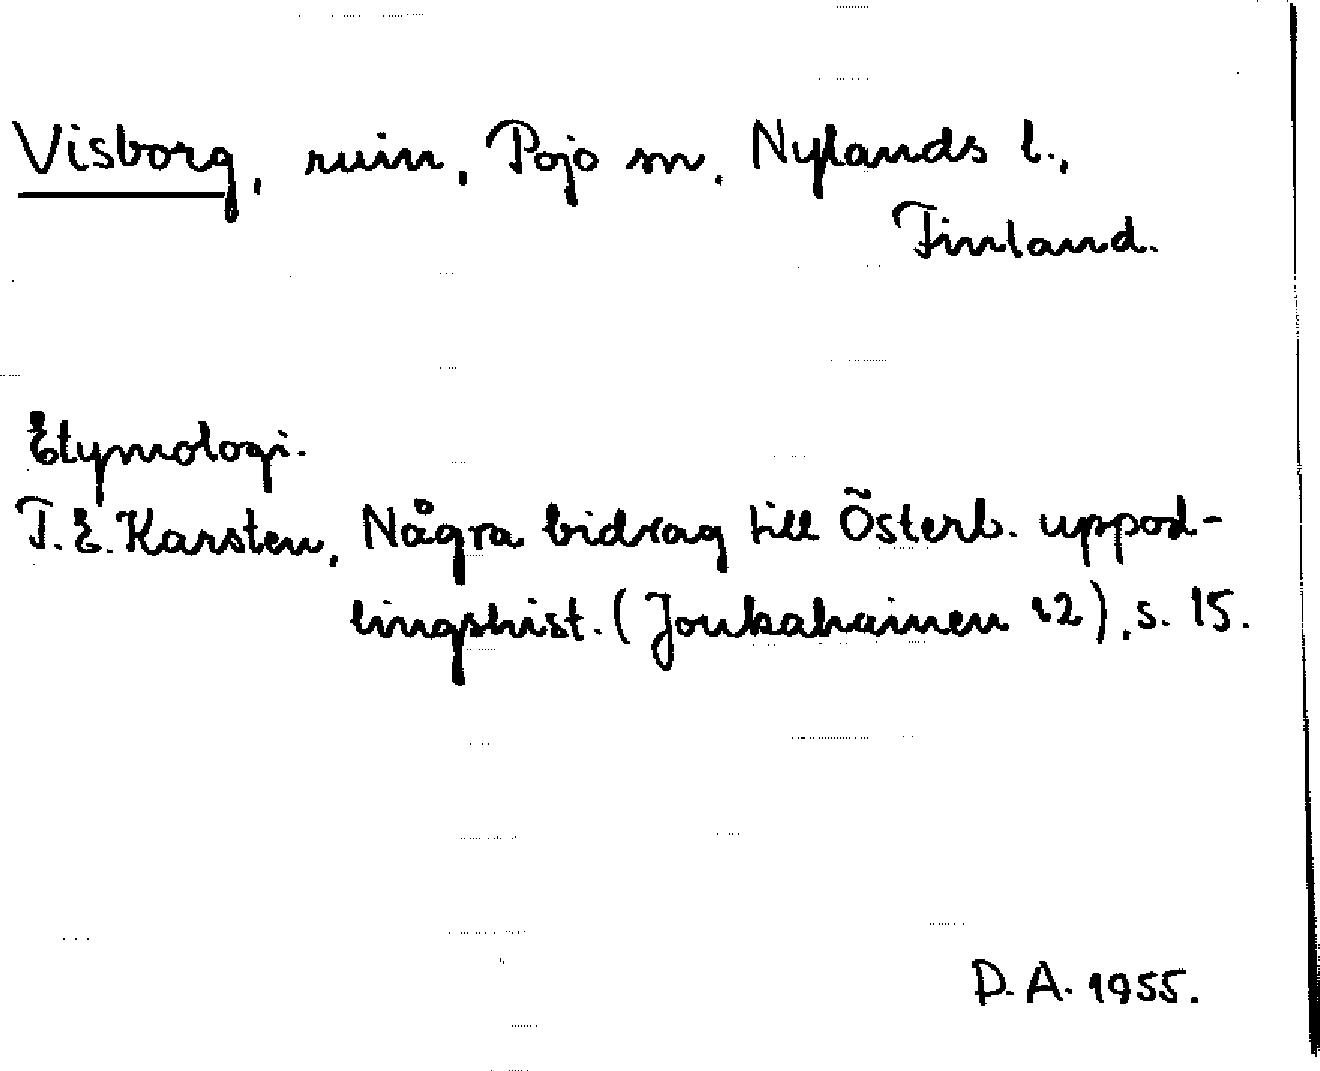 Visborg, ruin, Pojo sn. Nylands l.,
Finland.
Etymologi.
T.E. Karsten, Några bidrag till Österb. uppod-
lingshist. (Joukahainen 12), s. 15.
D.A. 1955.